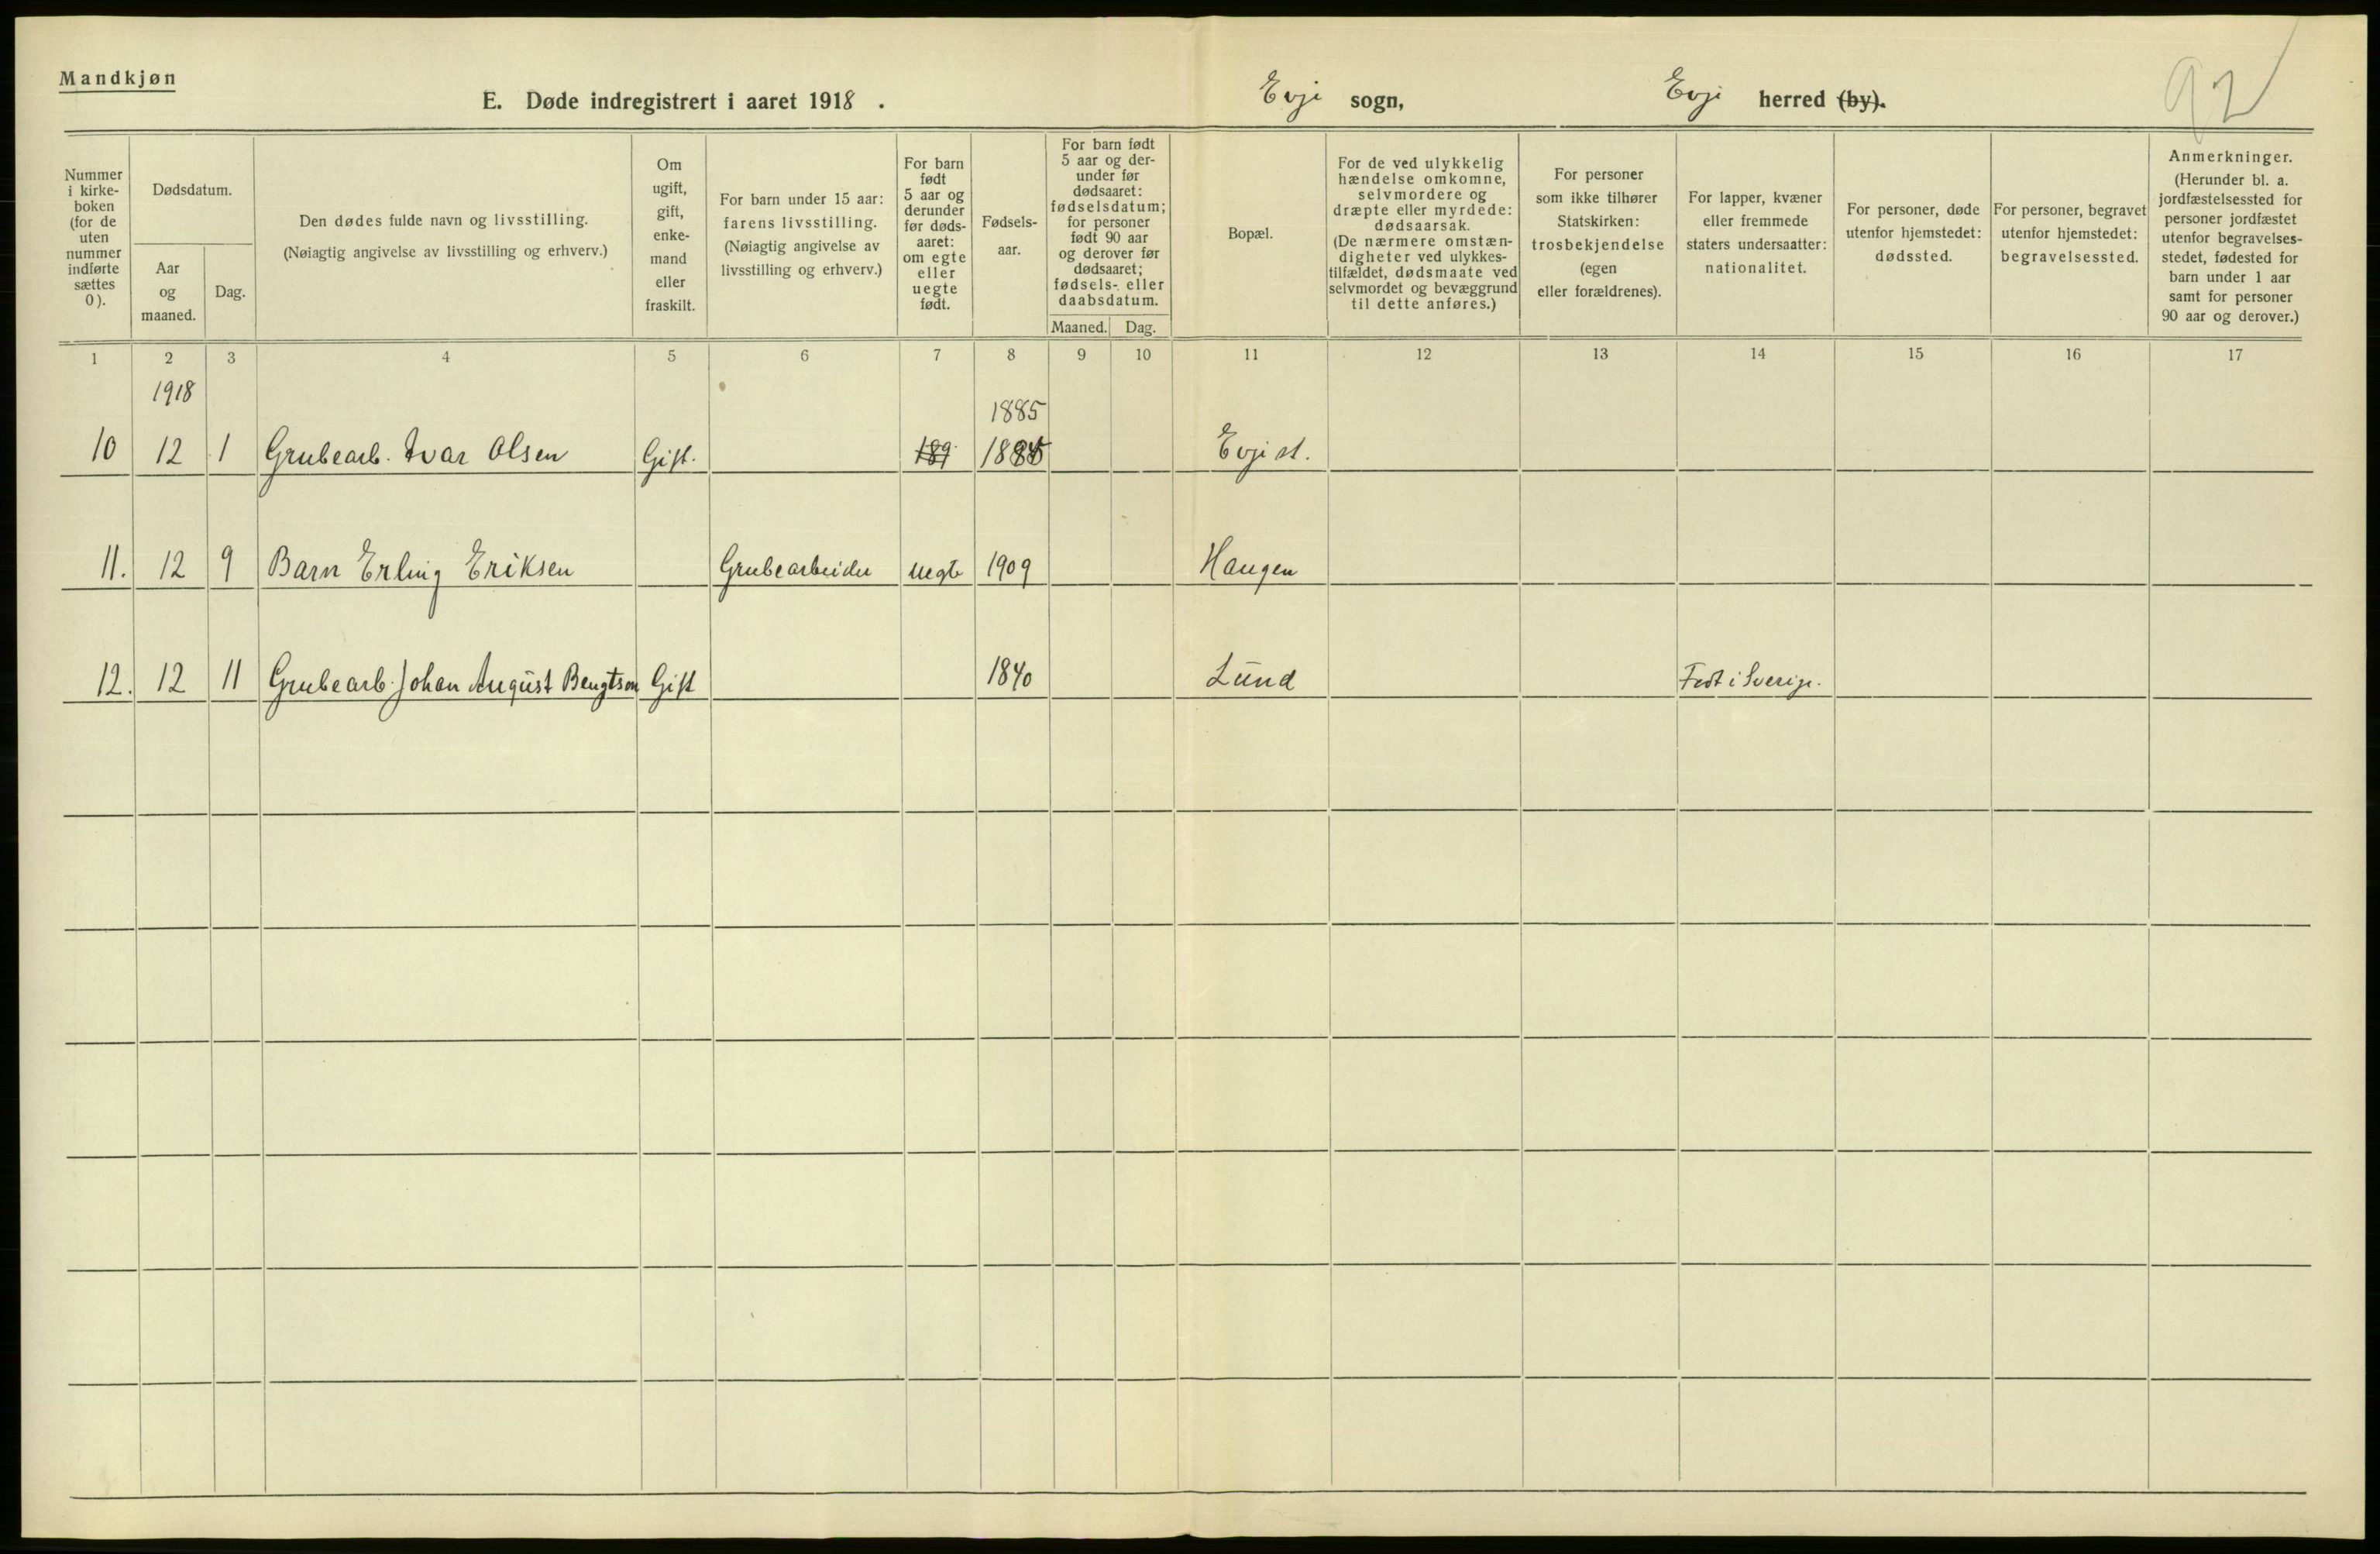 Mandkjøn
E. Døde indregistrert i aaret 1918 . Evje sogn, Evje herred (by).
92
Nummer
i kirke-
boken
(for de
uten
nummer
indførte
sættes
0).
Dødsdatum.
Aar
og
maaned.
Dag.
Den dødes fulde navn og livsstilling.
(Nøiagtig angivelse av livsstilling og erhverv.)
Om
ugift,
gift,
enke-
mand
eller
fraskilt.
For barn under 15 aar:
farens livsstilling.
(Nøiagtig angivelse av
livsstilling og erhverv.)
For barn
født
5 aar og
derunder
før døds-
aaret:
om egte
eller
uegte
født.
Fødsels-
aar.
For barn født
5 aar og der-
under før
dødsaaret:
fødselsdatum;
for personer
født 90 aar
og derover før
dødsaaret;
fødsels- eller
daabsdatum.
Maaned. Dag.
Bopæl.
For de ved ulykkelig
hændelse omkomne,
selvmordere og
dræpte eller myrdede:
dødsaarsak.
(De nærmere omstæn-
digheter ved ulykkes-
tilfældet, dødsmaate ved
selvmordet og bevæggrund
til dette anføres.)
For personer
som ikke tilhører
Statskirken:
trosbekjendelse
(egen
eller forældrenes).
For lapper, kvæner
eller fremmede
staters undersaatter:
nationalitet.
For personer, døde
utenfor hjemstedet:
dødssted.
For personer, begravet
utenfor hjemstedet:
begravelsessted.
Anmerkninger.
(Herunder bl. a.
jordfæstelsessted for
personer jordfæstet
utenfor begravelses-
stedet, fødested for
barn under 1 aar
samt for personer
90 aar og derover.)
1 2 3 4 5 6 7 8 9 10 11 12 13 14 15 16 17
1918
1885
10 12 1 Grubearb. Ivar Olsen Gift. 189 1885 Evje st.
11. 12 9 Barn Erling Eriksen Grubearbeider uegte 1909 Haugen
12. 12 11 Grubearb. Johan August Bengtson Gift 1840 Lund Født i Sverige.